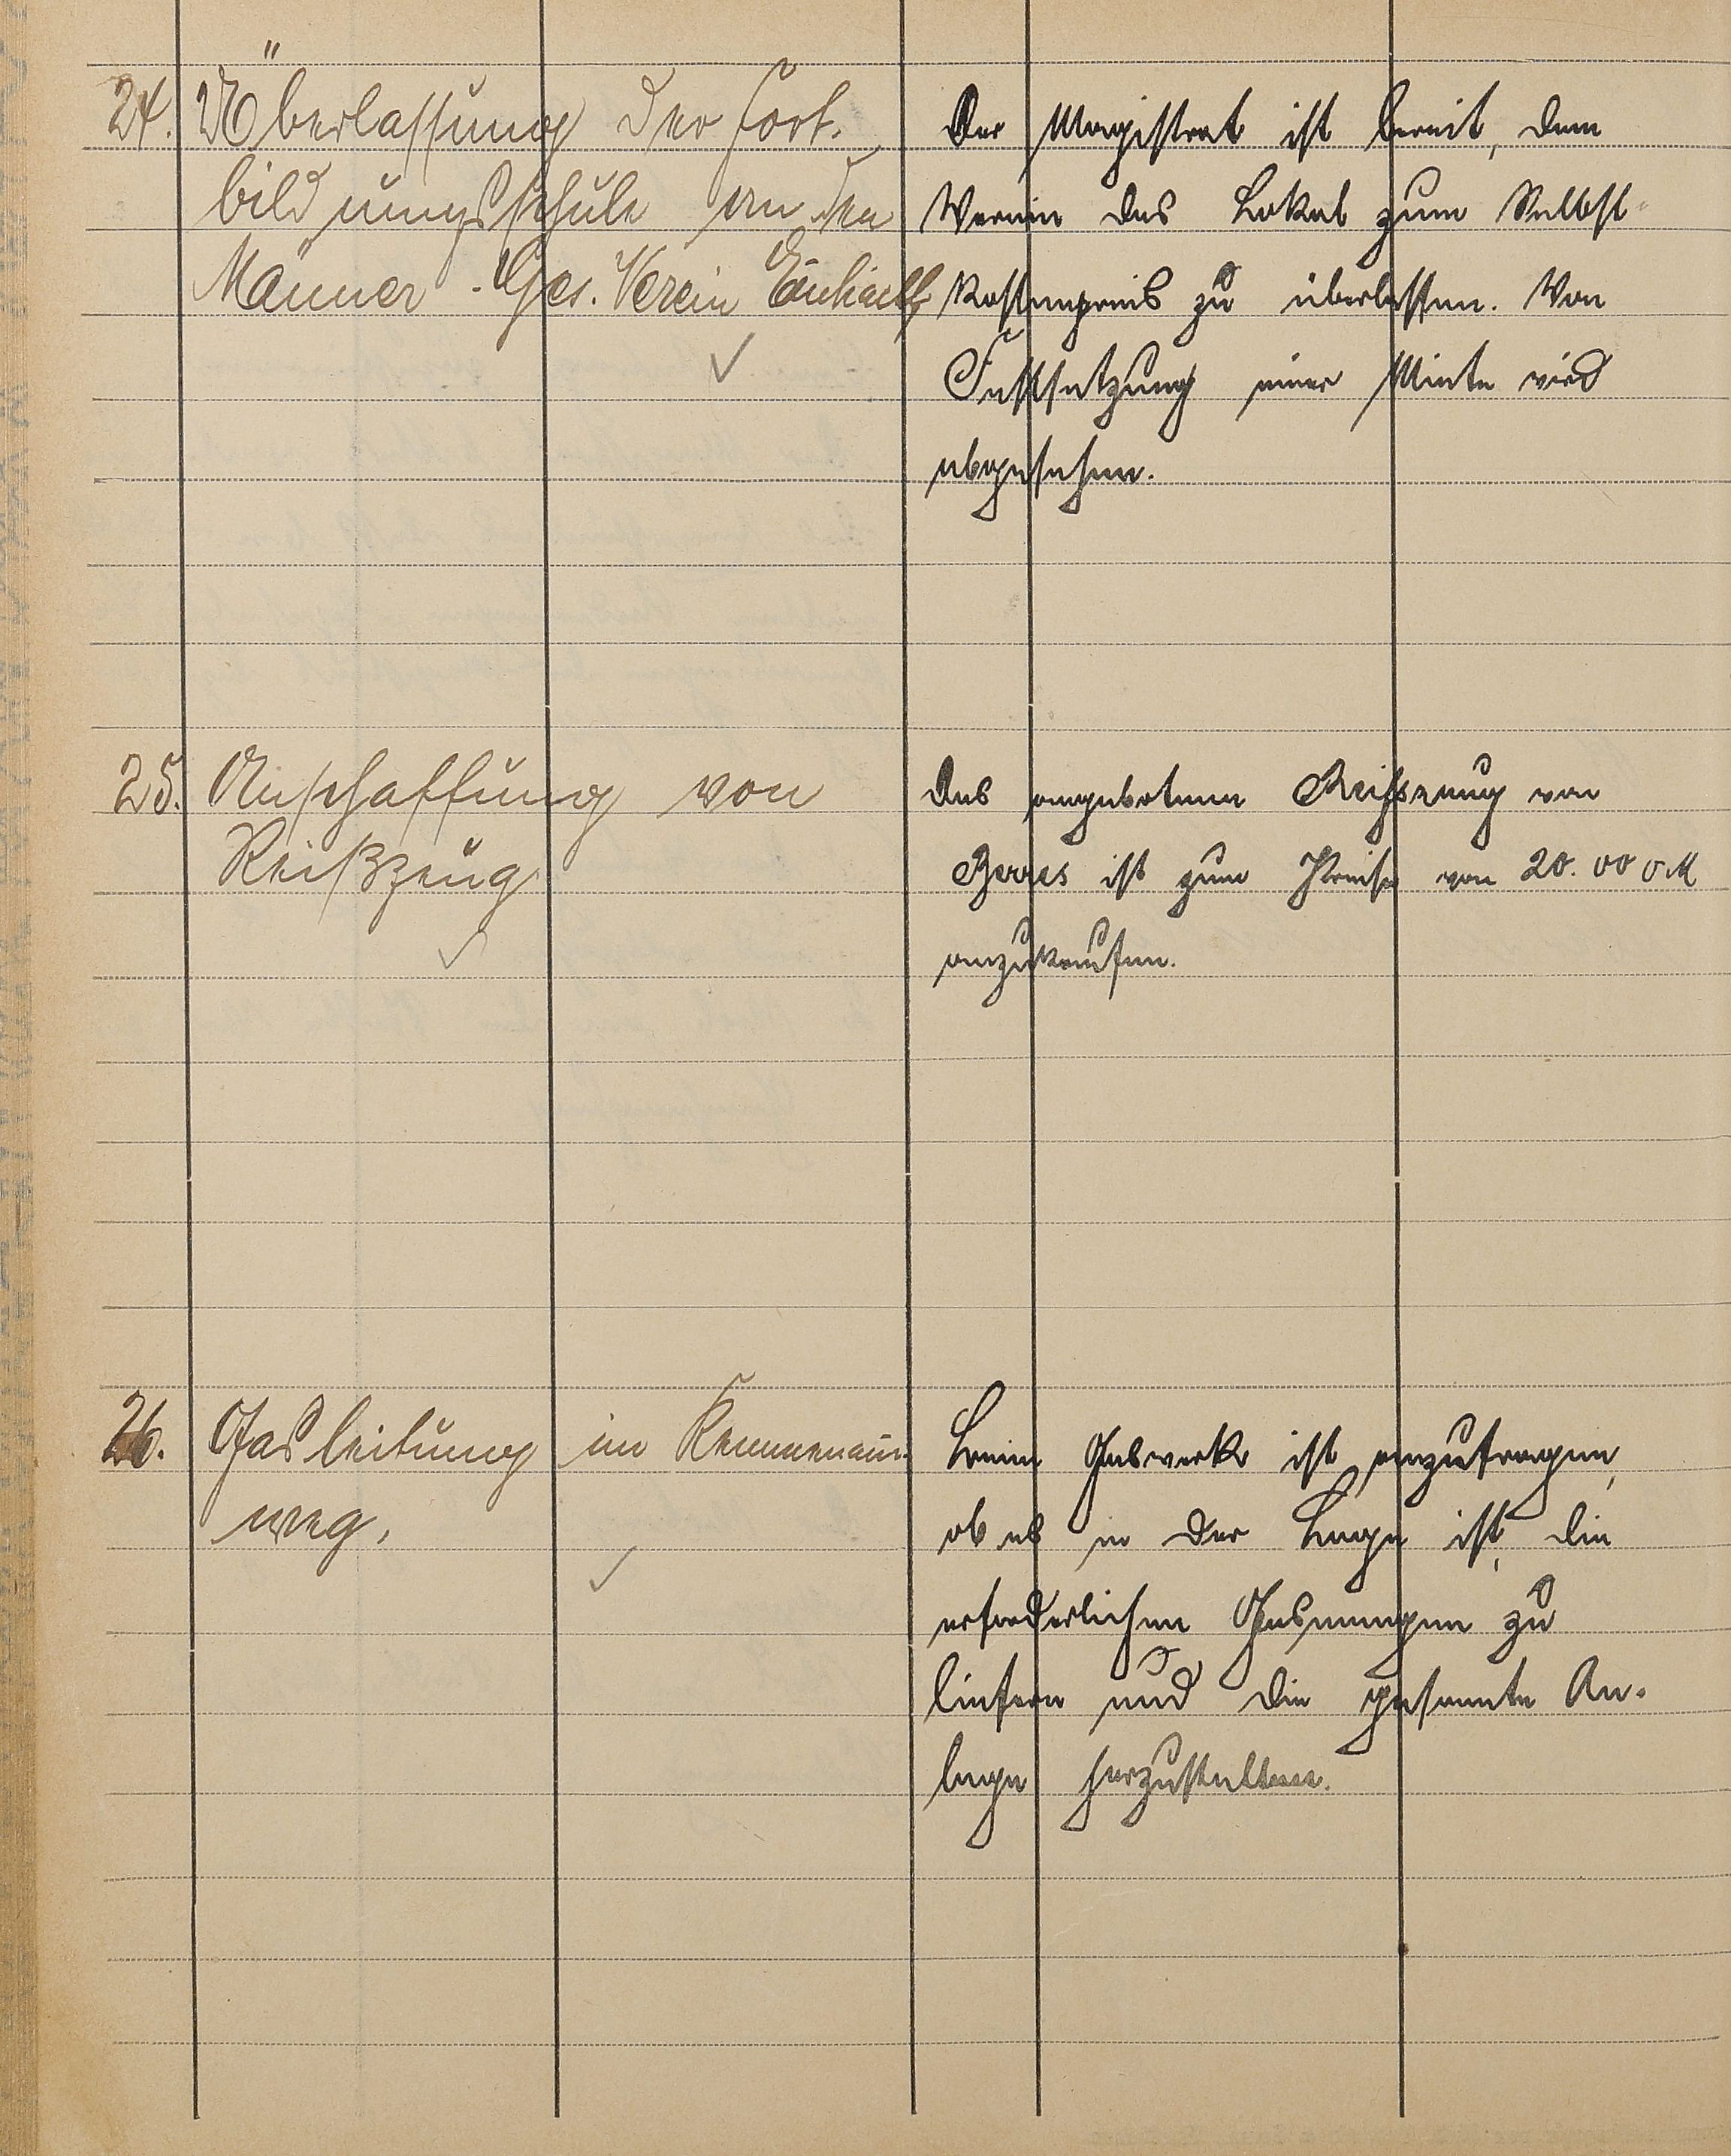 24. Überlassung der Fort-
bildungsschule an den
Männer-Ges. Verein Einhard
Der Magistrat ist bereit, dem
Verein das Lokal zum Selbst-
kostenpreis zu überlassen. Von
Festsetzung einer Miete wird
abgesehen.
25. Anschaffung von
Reißzeug
Das angebotene Reisszeug von
Berres ist zum Preise von 20.00 M
anzukaufen.
26. Gasleitung im
weg.
Beim Gaswerk ist anzufragen,
ob es in der Lage ist, die
erforderlichen Gasmengen zu
liefern und die gesamte An-
lage herzustellen.